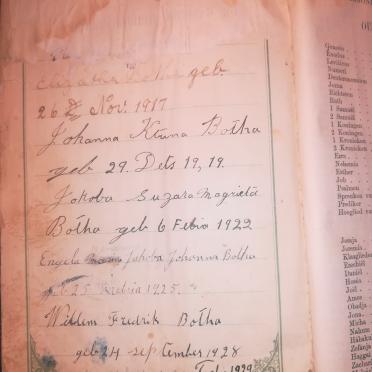 geb.
26 Nov. 1917
Johanna Botha
geb 29. Dets 19,19.
Jakoba Suzara Magrieta
Botha geb 6 Febia 1922
Engela Jakoba Johanna Botha
geb 25 1925.
Willem Fredrik Botha
geb 24 september 1928
1929
Genesis
Exodus
Leviticus
Numeri
Deuteronomium
Josua
Richteren
Ruth
1 Samuël
2 Samuël
1 Koningen
2 Koningen
1 Kronieken
2 Kronieken
Ezra
Nehemia
Esther
Job
Psalmen
Spreuken va
Prediker
Hooglied va
Jesaja
Jeremia
Klaaglieder
Ezechiël
Daniël
Hosea
Joël
Amos
Obadja
Jona
Micha
Nahum
Habakuk
Zefanja
Haggai
Zacharia